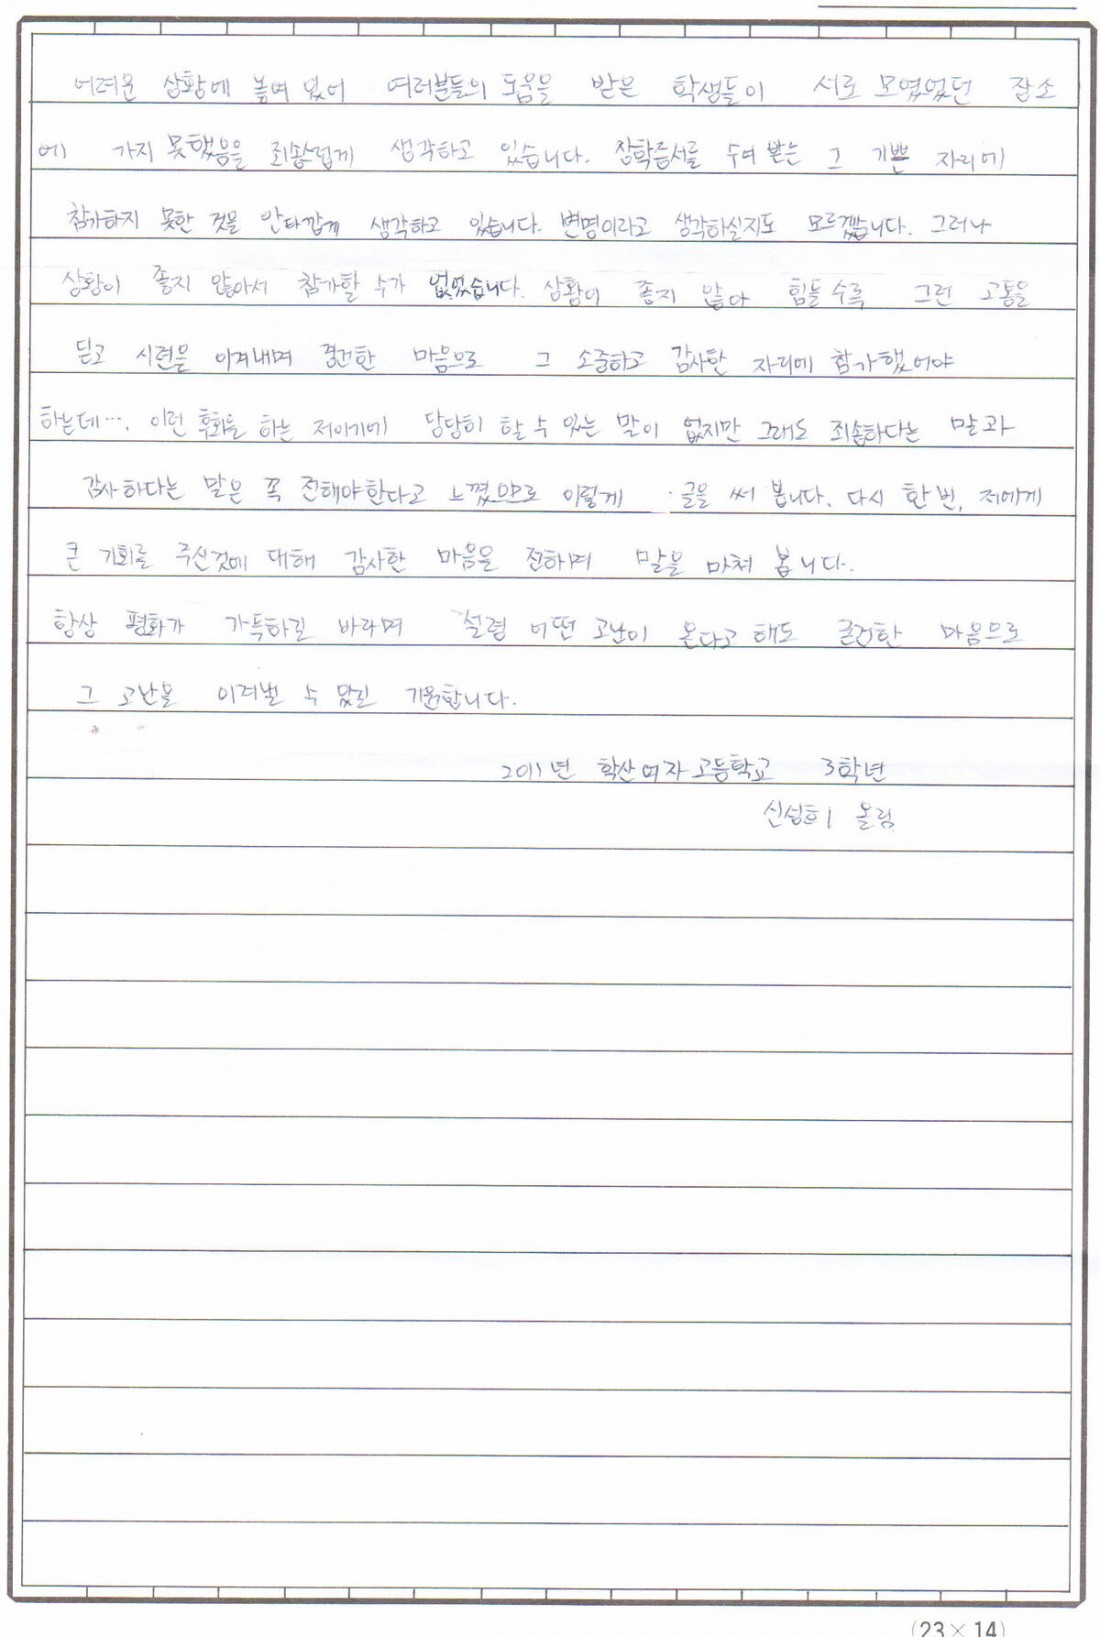 어려운 상황에 놓여 있어 여러분들의 도움을 받은 학생들이 서로 모였었던 장소
에 가지 못했음을 죄송스럽게 생각하고 있습니다. 장학증서를 수여 받는 그 기쁜 자리에
참가하지 못한 것을 안타깝게 생각하고 있습니다. 변명이라고 생각하실지도 모르겠습니다. 그러나
상황이 좋지 않아서 참가할 수가 없었습니다. 상황이 좋지 않아 힘들수록 그런 고통을
딛고 시련을 이겨내며 굳건한 마음으로 그 소중하고 감사한 자리에 참가했어야
하는데…. 이런 후회를 하는 저이기에 당당히 할 수 있는 말이 없지만 그래도 죄송하다는 말과
감사하다는 말은 꼭 전해야한다고 느꼈으므로 이렇게 글을 써 봅니다. 다시 한 번, 저에게
큰 기회를 주신것에 대해 감사한 마음을 전하며 말을 마쳐 봅니다.
항상 평화가 가득하길 바라며 설령 어떤 고난이 온다고 해도 굳건한 마음으로
그 고난을 이겨낼 수 있길 기원합니다.
2011년 학산여자고등학교 3학년
올림
(23×14)